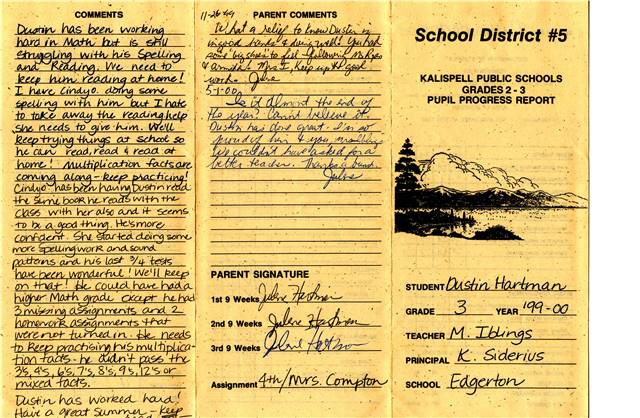 COMMENTS
Dustin has been working
hard in Math but is still
struggling with his Spelling
and Reading. We need to
keep him reading at home!
I have Cindy O. doing some
spelling with him but I hate
to take away the reading help
she needs to give him. We'll
keep trying things at school so
he can read, read & read at
home! Multiplication facts are
coming along - keep practicing!
Cindy O has been having Dustin read
the same book he reads with the
class with her also and it seems
to be a good thing. He's more
confident. She started doing some
more spelling work and sound
patterns and his last 3/4 tests
have been wonderful! We'll keep
on that! He could have had a
higher Math grade except he had
3 missing assignments and 2
homework assignments that
were not turned in. He needs
to keep practising his multiplica-
tion facts - he didn't pass the
3's, 4's, 6's, 7's, 8's, 9's, 12's or
mixed facts.
Dustin has worked hard!
Have a great Summer - Keep
PARENT COMMENTS
11-26-99
What a relief to know Dustin is
in good hands & doing well. You had
some big shoes to fill following
Keep up the good
work. Julene
5-1-00
Is it almost the end of
the year? Can't believe it.
Dustin has done great. I'm so
proud of him & you
We couldn't have asked for a
better teacher. Thanks a bunch.
Julene
PARENT SIGNATURE
1st 9 Weeks Julene Hartman
2nd 9 Weeks Julene Hartman
3rd 9 Weeks Julene Hartman
Assignment 4th/Mrs. Compton
School District #5
KALISPELL PUBLIC SCHOOLS
GRADES 2 - 3
PUPIL PROGRESS REPORT
STUDENT Dustin Hartman
GRADE 3 YEAR '99-00
TEACHER M. Iblings
PRINCIPAL K. Siderius
SCHOOL Edgerton